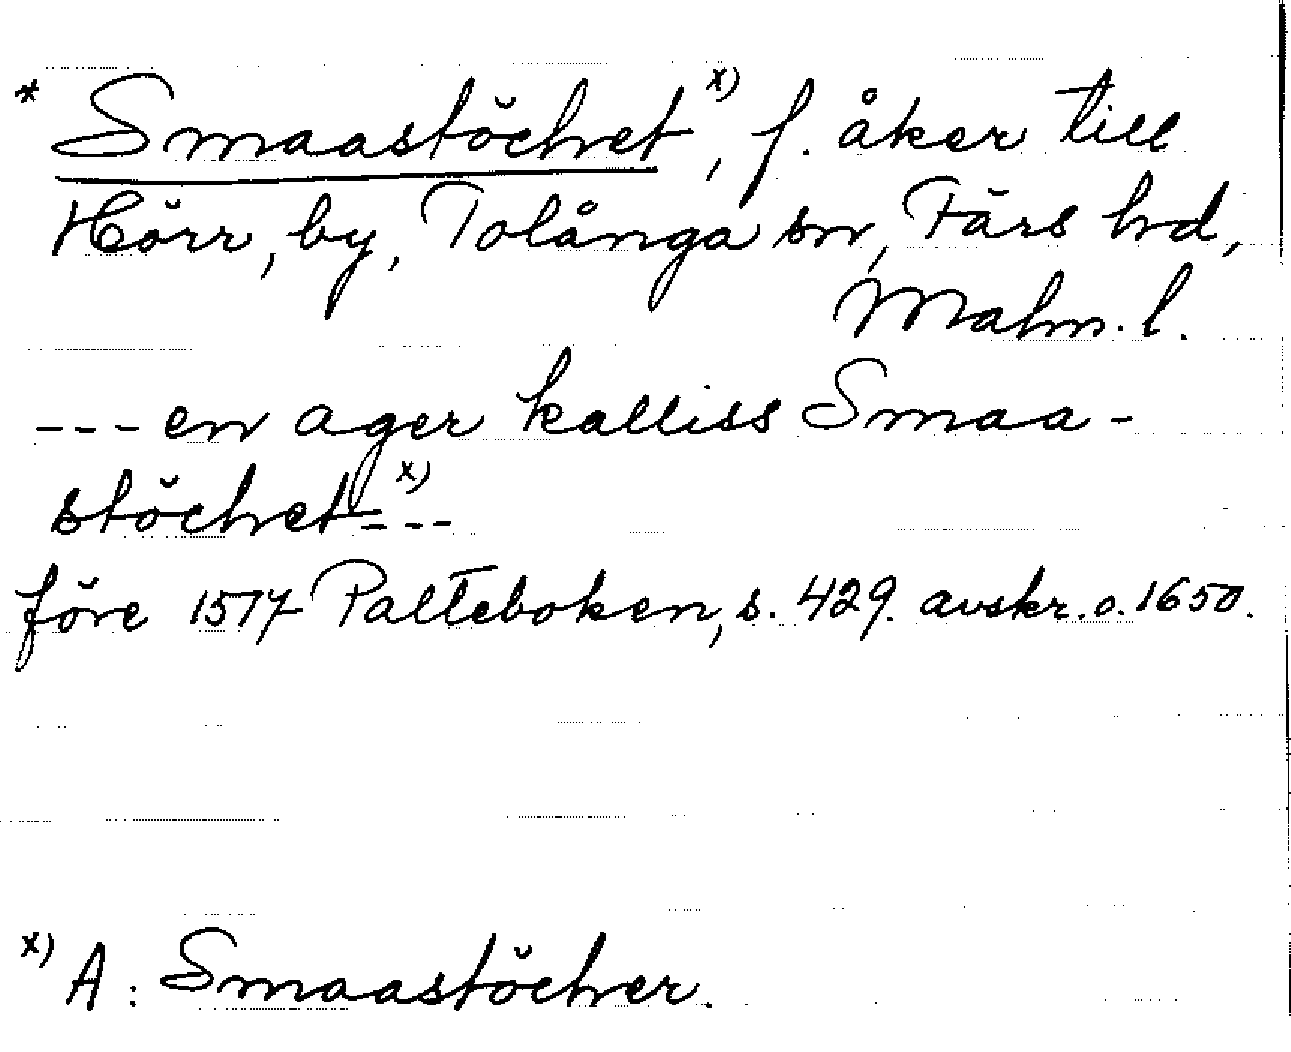 * Smaastöchet x), f. åker till
Hörr, by, Tolånga sn, Färs hd,
Malm. l.
--- en ager kalliss Smaa-
stöchet x) ---
före 1517 Palteboken, s. 429. avskr. o. 1650.
x) A: Smaastöcher.